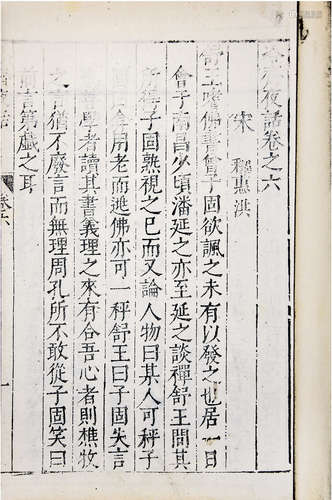 冷齋夜話卷之六
宋 釋惠洪
舒王嗜佛書曾子固欲諷之未有以發之也居一日
會于南昌少頃潘延之亦至延之談禪舒王問其
所得子固熟視之已而又論人物曰某人可秤子
用老而逃佛亦可一秤舒王曰子固失言
學者讀其書義理之來有合吾心者則樵牧
之言猶不廢言而無理周孔所不敢從子固笑曰
前言第戲之耳
卷六